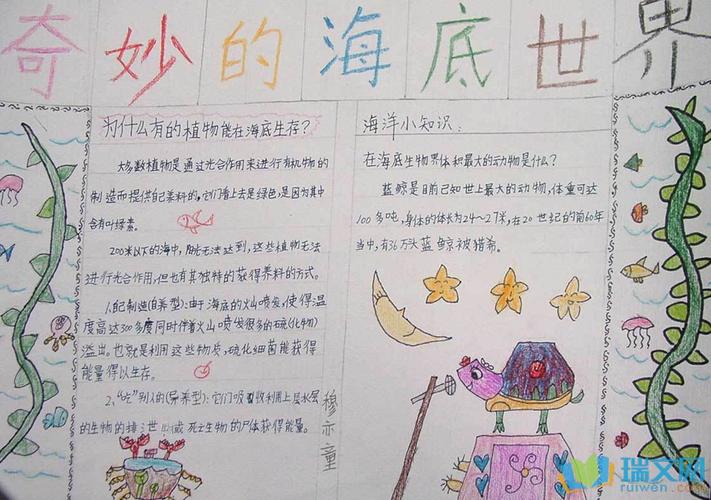 奇妙的海底世界
为什么有的植物能在海底生存?
大多数植物是通过光合作用来进行有机物的
制造而提供自己养料的,它们看上去是绿色,是因为其中
含有叶绿素。
200米以下的海中,阳光无法达到,这些植物无法
进行光合作用,但也有其独特的获得养料的方式。
1.配制造(自养型):由于海底的火山喷发,使得温
度高达300多度同时伴着火山喷发很多的硫(化物)
溢出。也就是利用这些物质,硫化细菌能获得
能量得以生存。
2."吃"别人的(异养型):它们吸收利用上层水层
的生物的排泄 或死亡生物的尸体获得能量。
穆亦童
海洋小知识:
在海底生物界体积最大的动物是什么?
蓝鲸是目前已知世上最大的动物,体重可达
100多吨,身体的体长为24~27米,在20世纪的前60年
当中,有36万头蓝鲸被猎希。
瑞文网
ruiwen.com